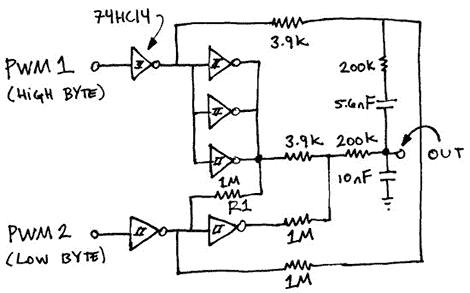 74HC14
3.9k
PWM 1
(HIGH BYTE)
200k
5.6nF
3.9k
200k
OUT
10nF
1M
R1
PWM 2
(LOW BYTE)
1M
1M